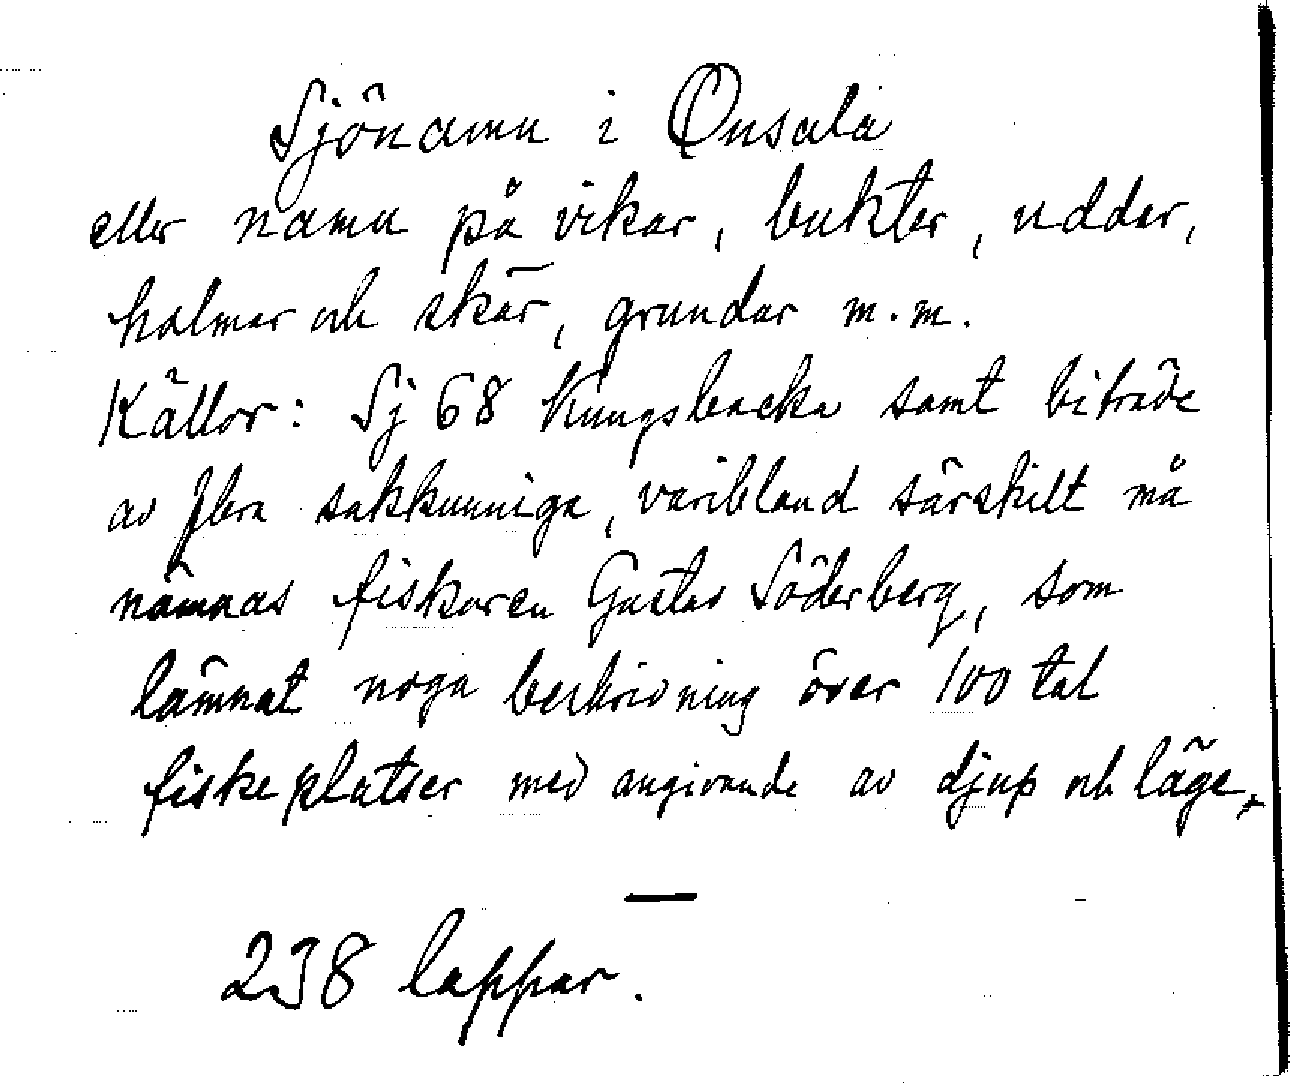 Sjönamn i Onsala
eller namn på vikar, bukter, uddar,
holmar och skär, grundar m.m.
Källor: Sj 68 Kungsbacka samt biträde
av flera sakkunniga, varibland särskilt må
nämnas fiskaren Gustav Söderberg, som
lämnat noga beskrivning över 100 tal
fiskeplatser med angivande av djup och läge.
—
238 lappar.